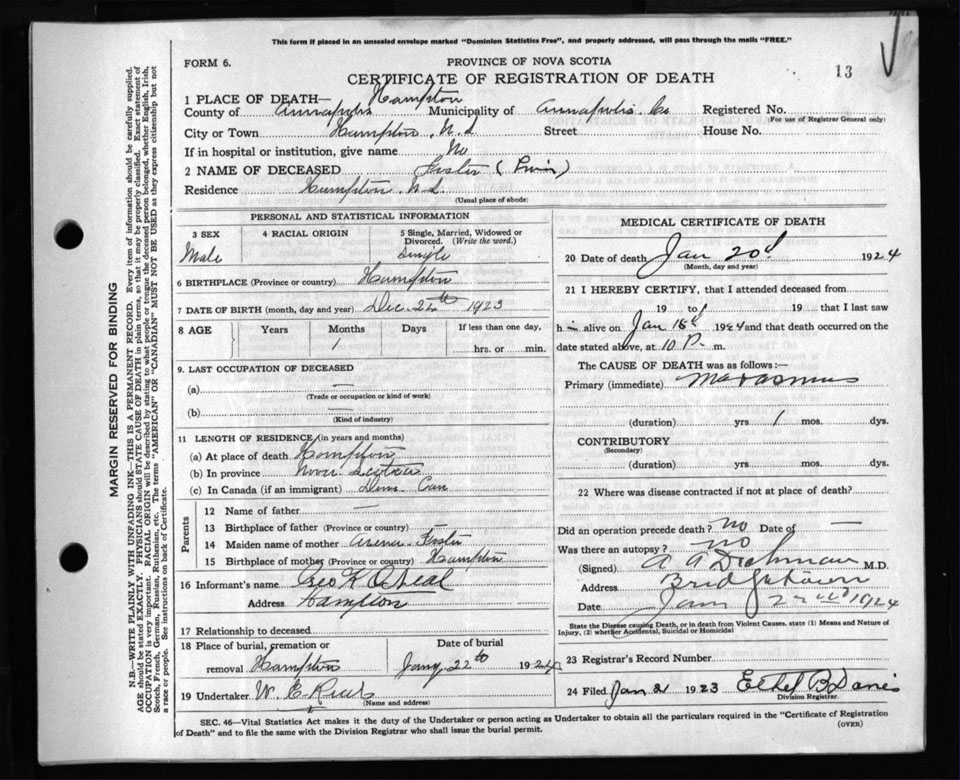 This form if placed in an unsealed envelope marked "Dominion Statistics Free", and properly addressed, will pass through the mails "FREE."
FORM 6.
PROVINCE OF NOVA SCOTIA
CERTIFICATE OF REGISTRATION OF DEATH
13
1 PLACE OF DEATH— Hampton
County of Annapolis Municipality of Annapolis Co Registered No.
For use of Registrar General only)
City or Town Hampton, N.S Street House No.
If in hospital or institution, give name No
2 NAME OF DECEASED Foster (Twin)
Residence Hampton N.S.
(Usual place of abode)
PERSONAL AND STATISTICAL INFORMATION
3 SEX 4 RACIAL ORIGIN 5 Single, Married, Widowed or Divorced. (Write the word.)
Male Single
6 BIRTHPLACE (Province or country) Hampton
7 DATE OF BIRTH (month, day and year) Dec. 24th 1923
8 AGE Years Months Days If less than one day,
1 hrs. or min.
9. LAST OCCUPATION OF DECEASED
(a) —
(Trade or occupation or kind of work)
(b) —
(Kind of industry)
11 LENGTH OF RESIDENCE (in years and months)
(a) At place of death Hampton
(b) In province Nova Scotia
(c) In Canada (if an immigrant) Dom. Can
Parents
12 Name of father —
13 Birthplace of father (Province or country)
14 Maiden name of mother Foster
15 Birthplace of mother (Province or country) Hampton
16 Informant's name Geo K O'Neal
Address Hampton
17 Relationship to deceased
18 Place of burial, cremation or removal Hampton Date of burial Jany 22th 1924
19 Undertaker W. E.
(Name and address)
MEDICAL CERTIFICATE OF DEATH
20 Date of death Jan 20d 1924
(Month, day and year)
21 I HEREBY CERTIFY, that I attended deceased from
19 to 19 that I last saw
him alive on Jan 18d 1924 and that death occurred on
date stated above, at 10 P. m.
The CAUSE OF DEATH was as follows:—
Primary (immediate) Marasmus
(duration) yrs 1 mos. dys.
CONTRIBUTORY
(Secondary)
(duration) yrs. mos. dys.
22 Where was disease contracted if not at place of death?
Did an operation precede death? no Date of —
Was there an autopsy? no
(Signed) A A Dechman M.D.
Address Bridgetown
Date Jan 22nd 1924
State the Disease causing Death, or in death from Violent Causes, state (1) Means and Nature of
Injury, (2) whether Accidental, Suicidal or Homicidal
23 Registrar's Record Number
24 Filed Jan 2 1923 Ethel B Davis
Division Registrar.
SEC. 46—Vital Statistics Act makes it the duty of the Undertaker or person acting as Undertaker to obtain all the particulars required in the "Certificate of Registration
of Death" and to file the same with the Division Registrar who shall issue the burial permit.
(OVER)
MARGIN RESERVED FOR BINDING
N.B.—WRITE PLAINLY WITH UNFADING INK—THIS IS A PERMANENT RECORD. Every item of information should be carefully supplied.
AGE should be stated EXACTLY. PHYSICIANS should STATE CAUSE OF DEATH in plain terms, so that it may be properly classified. Exact statement of
OCCUPATION is very important. RACIAL ORIGIN will be described by stating to what people or tongue the deceased person belonged, whether English, Irish,
Scotch, French, German, Russian, Ruthenian, etc. The terms "AMERICAN" OR "CANADIAN" MUST NOT BE USED as they express citizenship but not
a race or people. See instructions on back of Certificate.